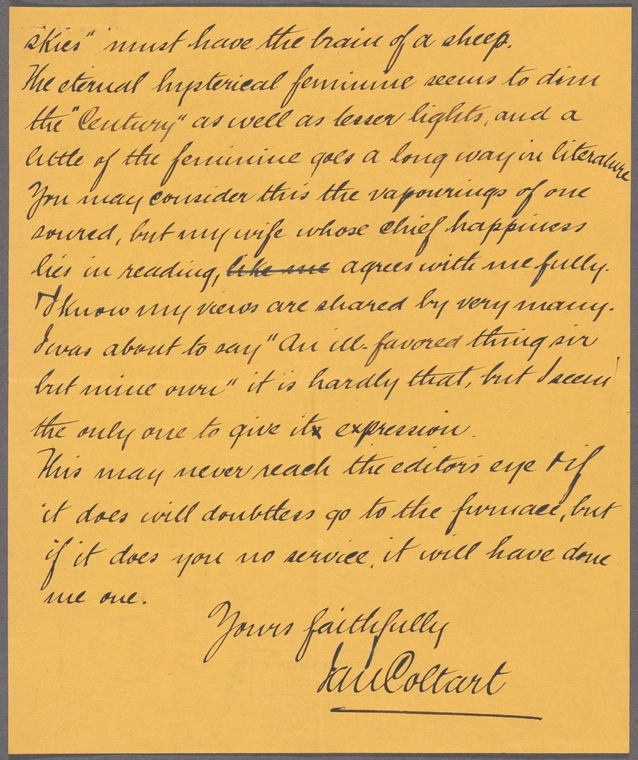 skies" must have the brain of a sheep.
The eternal hysterical feminine seems to dim
the "Century" as well as lesser lights, and a
little of the feminine goes a long way in literature
You may consider this the vapourings of one
soured, but my wife whose chief happiness
lies in reading, like me agrees with me fully.
I know my views are shared by very many.
I was about to say "An ill-favored thing sir
but mine own" it is hardly that, but I seem
the only one to give it expression.
This may never reach the editor's eye & if
it does will doubtless go to the furnace, but
if it does you no service, it will have done
me one.
Yours faithfully
Ian Coltart